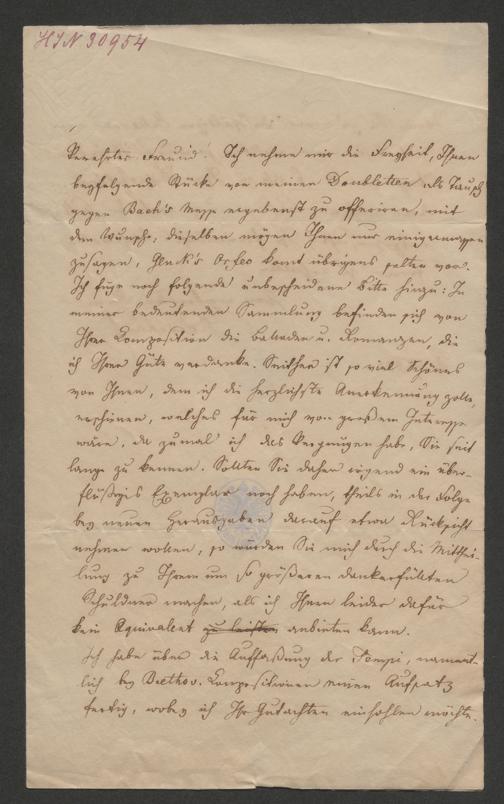 HIN 30954
Verehrter Freund! Ich nehme mir die Freyheit, Ihnen
beyfolgende Stücke von meinen Doubletten als Tausch
gegen Bach's Messe ergebenst zu offeriren, mit
dem Wunsche, dieselben mögen Ihnen nur einigermassen
zusagen, Gluck's Orfeo komt übrigens selten vor.
Ich füge noch folgende unbescheidene Bitte hinzu: In
meiner bedeutenden Sammlung befinden sich von
Ihrer Composition die Balladen u. Romanzen, die
ich Ihrer Güte verdanke. Seither ist so viel Schönes
von Ihnen, dem ich die herzlichste Anerkennung zolle,
erschienen, welches für mich von großem Interesse
wäre, da zumal ich das Vergnügen habe, Sie seit
lange zu kennen. Sollten Sie daher irgend ein über-
flüßiges Exemplar noch haben, theils in der Folge
bey neuen Herausgaben darauf etwa Rücksicht
nehmen wollen, so würden Sie mich durch die Mitthei-
lung zu Ihrem um so größeren dankerfüllten
Schuldner machen, als ich Ihnen leider dafür
kein Equivalent zu leisten anbieten kann.
Ich habe über die Auffaßung der Tempi, nament-
lich bey Beethov. Compositionen einen Aufsatz
fertig, wobey ich Ihr Gutachten einholen möchte.